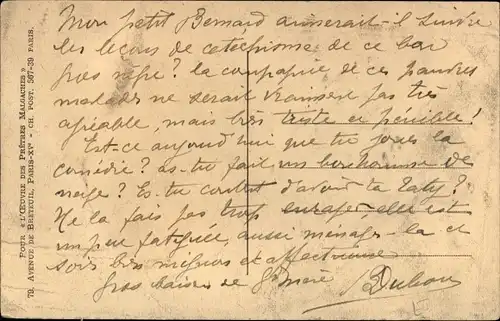 Mon petit Bernard aimerait-il suivre
les leçons de catéchisme de ce bon
gros nègre? la compagnie de ces pauvres
malades ne serait vraiment pas très
agréable, mais très triste et pénible!
Est-ce aujourd'hui que tu joues la
comédie? as-tu fait un bonhomme de
neige? Es-tu content d'avoir ta Taty?
Ne la fais pas trop enrager elle est
un peu fatiguée, aussi ménage-la et
sois très mignon et affectueux
Gros baisers de Gd mère
Dubou
POUR « L'ŒUVRE DES PRÊTRES MALGACHES »
79, AVENUE DE BRETEUIL, PARIS-XVe - CH. POST. 567-39 PARIS.